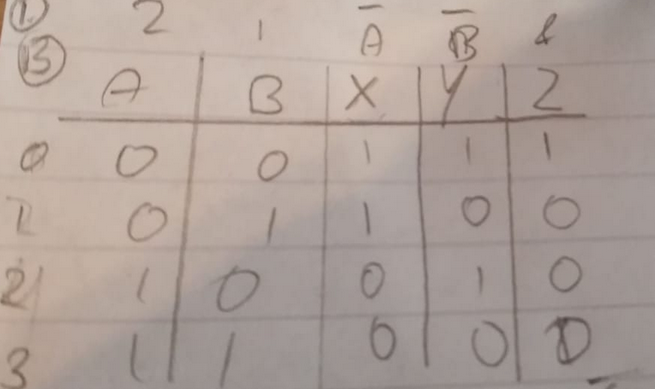 ① 2 1 A̅ B̅ &
⑬ A B X Y Z
0 0 0 1 1 1
1 0 1 1 0 0
2 1 0 0 1 0
3 1 1 0 0 0